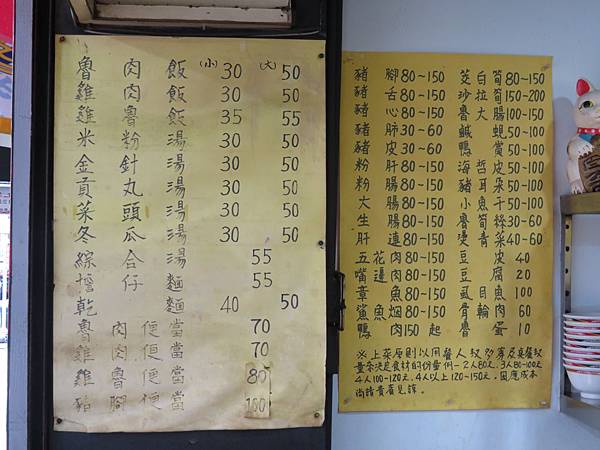 魯肉飯 (小)30 (大)50
雞肉飯 30 50
雞魯飯 35 55
米粉湯 30 50
金針湯 30 50
貢丸湯 30 50
菜頭湯 30 50
冬瓜湯 30 50
綜合湯 55
擔仔麵 55
乾麵 40 50
魯肉便當 70
雞肉便當 70
雞魯便當 80
豬腳便當 100
豬腳 80~150
豬舌 80~150
豬心 80~150
豬肺 30~60
豬皮 30~60
粉肝 80~150
粉腸 80~150
大腸 80~150
生腸 80~150
肝連 80~150
五花肉 80~150
嘴邊肉 80~150
章魚 80~150
鯊魚烟 80~150
鴨肉 150 起
茭白筍 80~150
沙拉筍 150~200
魯大腸 100~150
鹹蜆 50~100
鴨賞 50~100
海哲皮 50~100
豬耳朵 50~100
小魚干 50~100
魯筍絲 30~60
燙青菜 40~60
豆皮 40
豆腐 20
虱目魚 100
骨輪肉 60
魯蛋 10
※上菜原則以用餐人數多寡及桌餐數
量來決定食材的份量例-2人80元.3人80~100元
4人100~120元.4人以上120~150元.因應成本
尚請貴賓見諒。